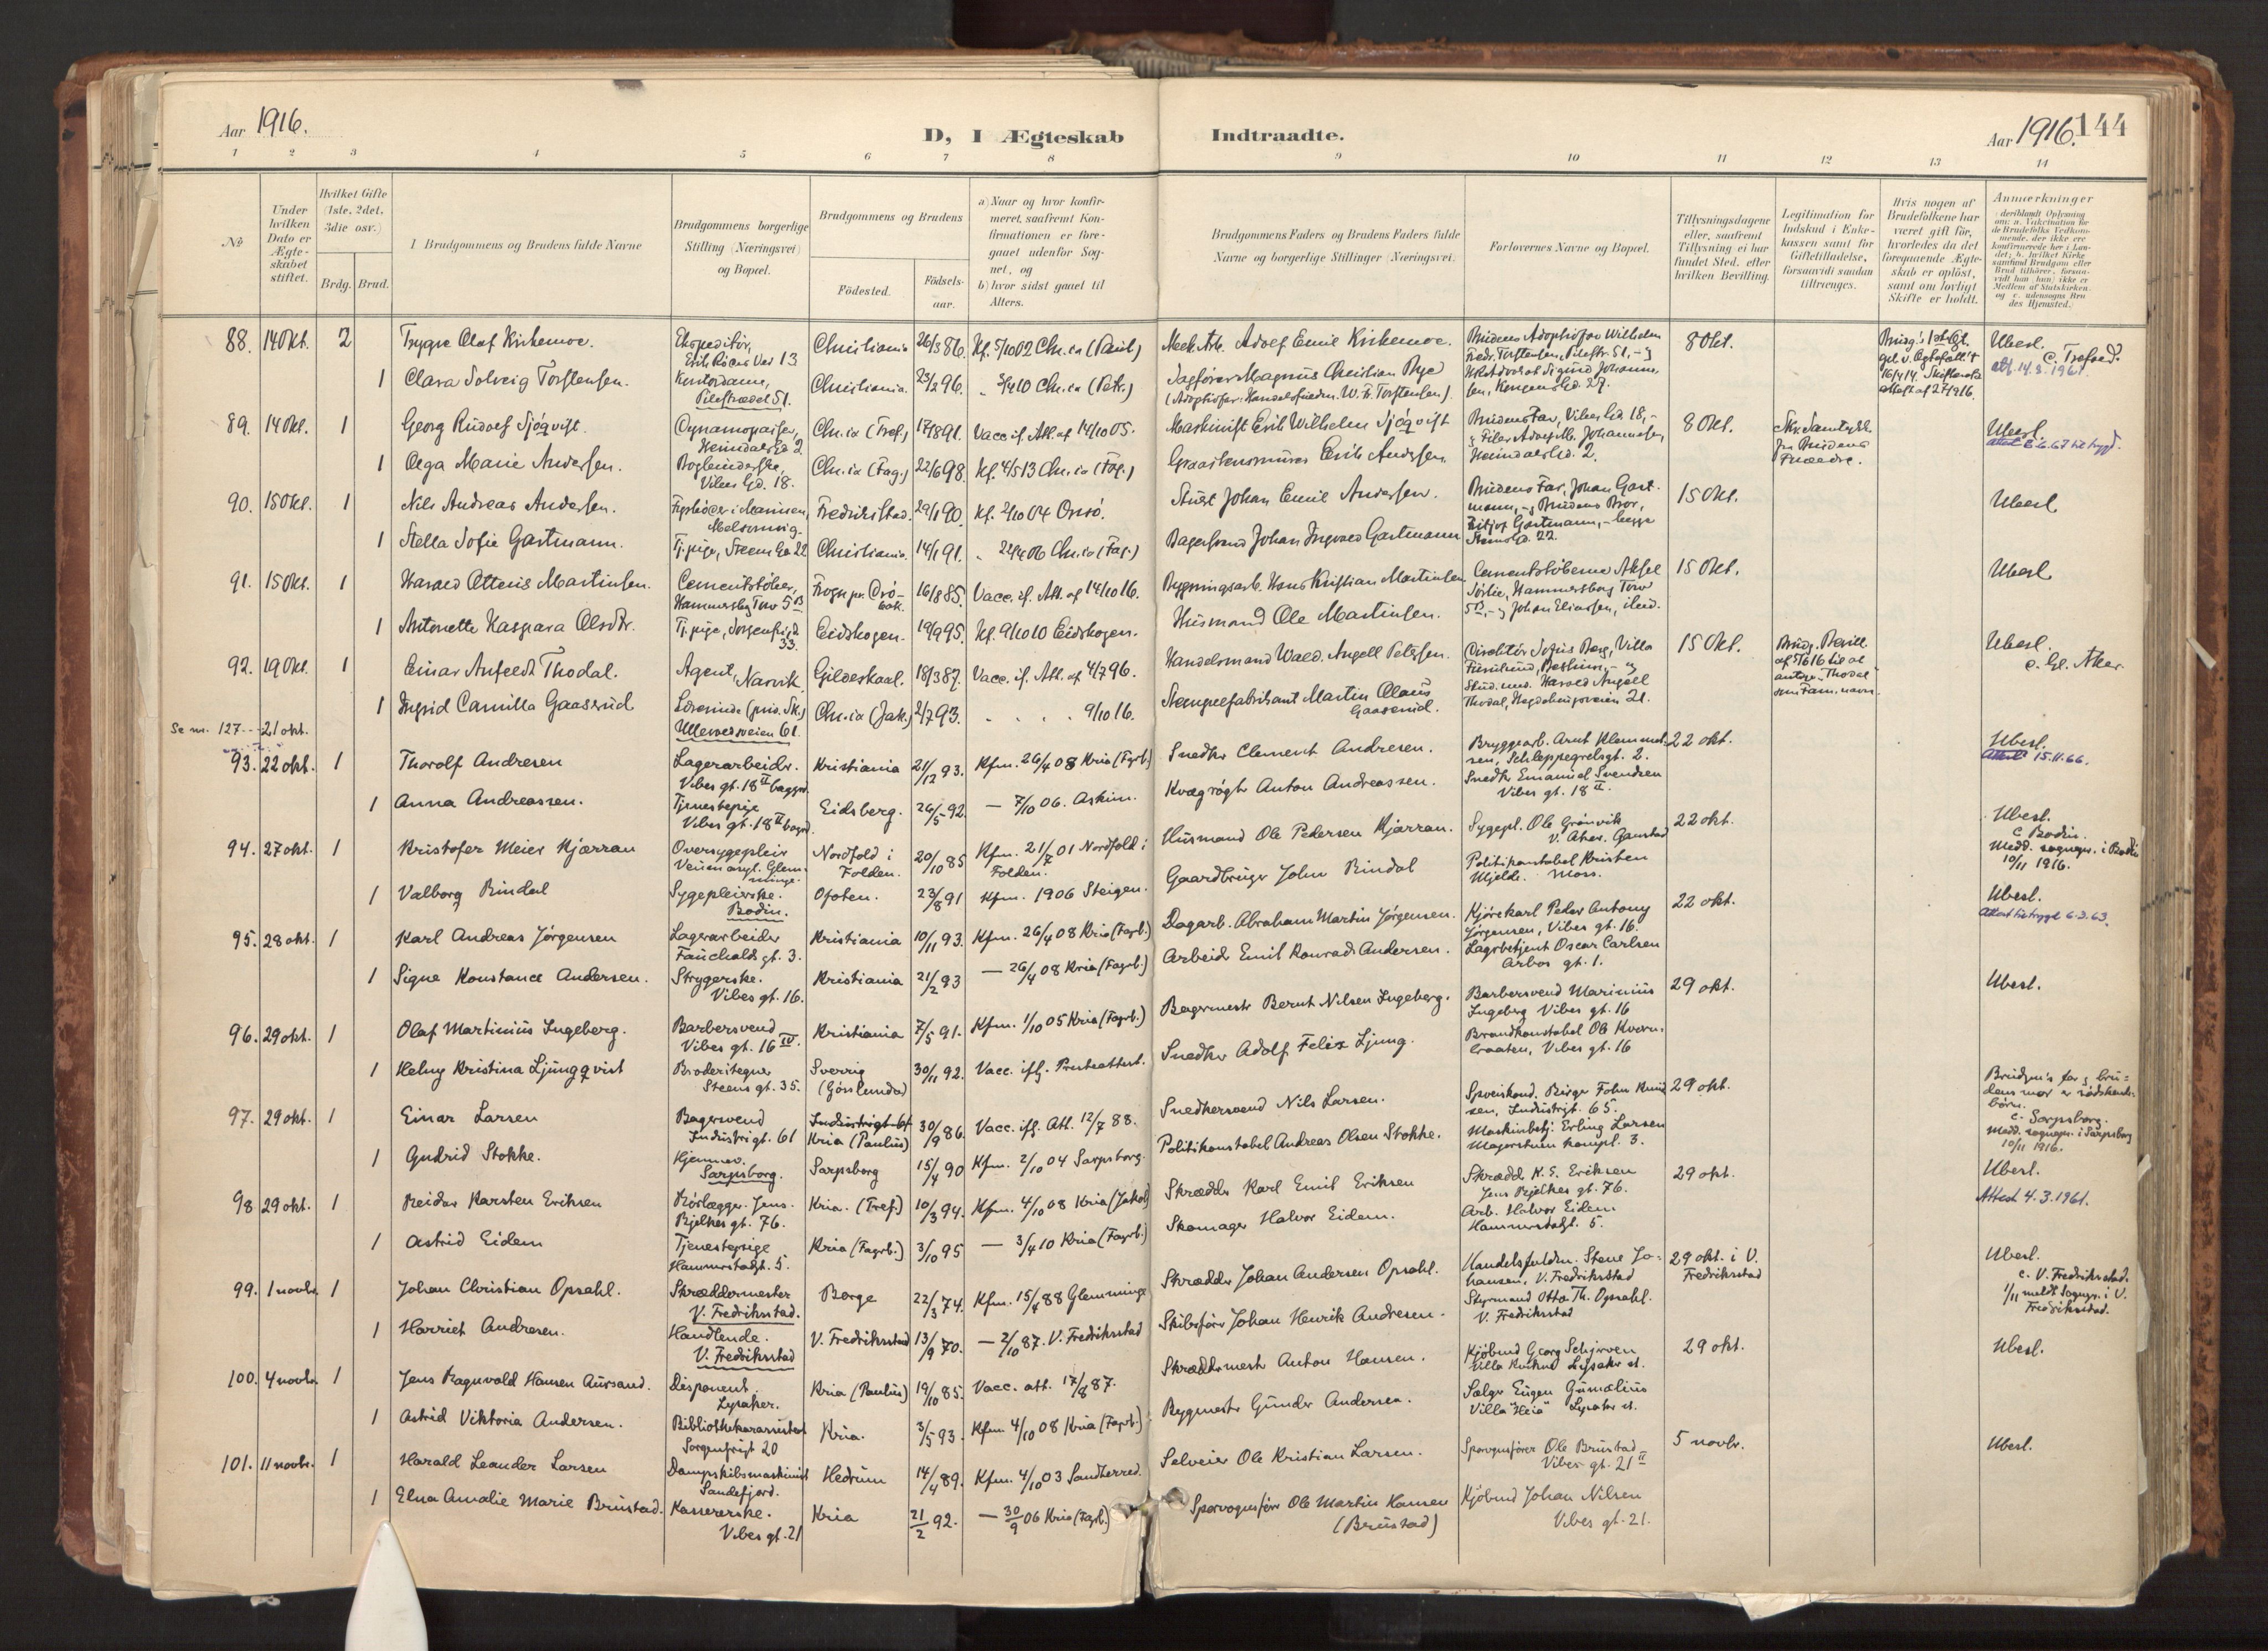 Aar 1916.
D, I Ægteskab Indtraadte.
Aar 1916. 144
1 2 3 4 5 6 7 8 9 10 11 12 13 14
No
Under hvilken Dato er Ægteskabet stiftet.
Hvilket Gifte (1ste, 2det, 3die osv.)
Brdg. Brud.
I Brudgommens og Brudens fulde Navne
Brudgommens borgerlige Stilling (Næringsvei) og Bopæl.
Brudgommens og Brudens
Födested.
Födsels-aar.
a) Naar og hvor konfirmeret, saafremt Konfirmationen er foregaaet udenfor Sognet, og
b) hvor sidst gaaet til Alters.
Brudgommens Faders og Brudens Faders fulde Navne og borgerlige Stillinger (Næringsvei.
Forlovernes Navne og Bopæl.
Tillysningsdagene eller, saafremt Tillysning ei har fundet Sted, efter hvilken Bevilling.
Legitimation for Indskud i Enkekassen samt for Giftetilladelse, forsaavidt saadan tiltrænges.
Hvis nogen af Brudefolkene har været gift för, hvorledes da det foregaaende Ægteskab er oplöst, samt om lovligt Skifte er holdt.
Anmerkninger
88. 14 Okt. 2 Trygve Olaf Kirkemoe. Ekspeditör, Christiania 26/3 86. Kf. 5/10 02 Chr.ia (Paul) Mek. Arb. Adolf Emil Kirkemoe. 8 Okt. Ubesl.
1 Clara Solveig Torstensen. Kontordame, Pilestrædet 51. Christiania. 23/2 96. 3/4 10 Chr.ia (Petr.) Sagförer Magnus Christian Bye
(Adoptivfar: Handelsfuldm. W. F. Torstensen)
89. 14 Okt. 1 Georg Rudolf Sjöqvist. Dynamopasser, Heimdalsgd 2. Chr.ia (Tref.) 17/8 91. Vacc. if. Att. af 14/10 05. Maskinist Erik Wilhelm Sjöqvist Brudens Far, Vibes Gd 18, 8 Okt. Ubesl.
1 Olga Marie Andersen. Bogbinderske, Vibes Gd. 18. Chr.ia (Fag.) 22/6 98. Kf. 4/5 13 Chr.ia (Fag.) Erik Andersen. Heimdalsgd. 2.
90. 15 Okt. 1 Nils Andreas Andersen. Fyrböder i Marinen, Melsomvig. Fredrikstad. 29/1 90. Kf. 2/10 04 Onsö. Stuert Johan Emil Andersen. Brudens Far, Johan Gartmann, 15 Okt. Ubesl.
1 Stella Sofie Gartmann. Tj.pige, Steens Gd 22 Christiania. 14/1 91. 22/4 06 Chr.ia (Fag.) Bagersvend Johan Ingvald Gartmann Steens Gd. 22.
91. 15 Okt. 1 Harald Otteus Martinsen. Cementstöber, Hammersbg Terr 5 B Frogn pr. Dröbak. 16/8 85. Vacc. if. Att. af 14/10 16. Bygningsarb. Hans Kristian Martinsen Cementstöberne Aksel 15 Okt. Ubesl.
1 Antonette Kaspara Olsdtr. Tj.pige, Sorgenfrigd 33. Eidskogen. 19/9 95. Kf. 9/10 10 Eidskogen. Husmand Ole Martinsen. Johan Eliassen, ibid.
92. 19 Okt. 1 Einar Anfeldt Thodal. Agent, Narvik Gildeskaal. 18/3 87. Vacc. if. Att. af 4/7 96. Handelsmand Wald. Angell Petersen. 15 Okt. Ubesl. c. Gl. Aker.
1 Ingrid Camilla Gaaserud Lærerinde (priv. Sk.) Ullevoldsveien 61. Chr.ia (Jak.) 2/7 93. 9/10 16. Stempelfabrikant Martin Olaus Gaaserud.
Se nr. 127 21 okt.
93. 22 okt. 1 Thorolf Andresen Lagerarbeider. Vibes gt. 18 II baggd. Kristiania 21/12 93. Kfm. 26/4 08 Kria (Fagrb.) Snedker Clement Andresen. Bryggearb. Arnt Klemmetsen, Schleppegrelsgt. 2. 22 okt. Ubesl. Attest 15.11.66.
1 Anna Andreassen. Tjenestepige Vibes gt. 18 II bagd. Eidsberg. 26/5 92. — 7/10 06. Askim. Kvægrøgter Anton Andreassen. Snedker Emanuel Svendsen Vibes gt. 18 II.
94. 27 okt. 1 Kristofer Meier Kjærran Oversygepleier Veum asyl. Glemminge. Nordfold i Folden. 20/10 85 Kfm. 21/7 01 Nordfold i Folden. Husmand Ole Pedersen Kjærran. Sygepl. Ole Grønvik V. Aker. Gaustad 22 okt. Ubesl. c Bodin. Medd. sognepr. i Bodin 10/11 1916.
1 Valborg Rindal Sygepleierske. Bodin. Ofoten. 23/8 91 Kfm. 1906 Steigen. Gaardbruger John Rindal Politikonstabel Kristen Mjelde. Moss.
95. 28 okt. 1 Karl Andreas Jörgensen Lagerarbeider Fauchalds gt. 3. Kristiania 10/11 93. Kfm. 26/4 08 Kria (Fagrb.) Dagarb. Abraham Martin Jörgensen. Kjörekarl Peder Antony Jörgensen, Vibes gt. 16. 22 okt. Ubesl. Attest til trygd 6.3.63.
1 Signe Konstance Andersen. Strygerske. Vibes gt. 16. Kristiania 21/2 93 — 26/4 08 Kria (Fagrb.) Arbeider Emil Konrad Andersen. Lagerbetjent Oscar Carlsen Arbos gt. 1.
96. 29 okt. 1 Olaf Martinius Ingeberg. Barbersvend Vibes gt. 16 IV. Kristiania 7/5 91. Kfm. 1/10 05 Kria (Fagrb.) Bagermester Bernt Nilsen Ingeberg. Barbersvend Marinius Ingeberg Vibes gt. 16 29 okt. Ubesl.
1 Helny Kristina Ljungqvist Broderitegner Steens gt. 35. Sverrig (Göslunda) 30/11 92. Vacc. iflg. Presteattest. Snedker Adolf Felix Ljung. Brandkonstabel Ole Kvernbraaten, Vibes gt. 16
97. 29 okt. 1 Einar Larsen Bagersvend Industrigt. 61 Industrigt. 61 Kria (Paulus) 30/9 86. Vacc. iflg. Att. 12/7 88. Snedkersvend Nils Larsen. Industrigt. 65. 29 okt. Brudgm's far og brudens mor er sødskendebörn. c. Sarpsborg. Medd. sognepr. i Sarpsborg 10/11 1916.
1 Gudrid Stokke. Hjemmev. Sarpsborg. Sarpsborg 15/4 90 Kfm. 2/10 04 Sarpsborg. Politikonstabel Andreas Olsen Stokke. Maskinbetj. Erling Larsen Majorstuen kompl. 3.
98 29 okt. 1 Reidar Karsten Eriksen Rörlægger. Jens Bjelkes gt. 76. Kria. (Tref.) 10/3 94. Kfm. 4/10 08 Kria (Jakob) Skrædder Karl Emil Eriksen Skrædder K. E. Eriksen Jens Bjelkes gt. 76. 29 okt. Ubesl. Attest 4.3.1961.
1 Astrid Eidem Tjenestepige Hammerstadgt. 5. Kria (Fagrb.) 3/10 95 — 3/4 10 Kria (Fagrb.) Skomager Halvor Eidem. Arb. Halvor Eidem Hammerstadgt. 5.
99. 1 novbr. 1 Johan Christian Opsahl. Skræddermester V. Fredriksstad. Borge 22/3 74. Kfm. 15/4 88 Glemminge Skrædder Johan Andersen Opsahl. Handelsfuldm. Stene Johansen, V. Fredriksstad 29 okt. i V. Fredriksstad Ubesl. c. V. Fredriksstad. 1/11 meldt sognepr. i V. Fredriksstad.
1 Harriet Andresen. Handlende. V. Fredriksstad V. Fredriksstad 13/9 70. — 2/10 87. V. Fredriksstad Skibsförer Johan Henrik Andresen. Styrmand Otto Th. Opsahl. V. Fredriksstad
100. 4 novbr. 1 Jens Ragnvald Hansen Aursand. Disponent. Lysaker. Kria (Paulus) 19/10 85. Vacc. att. 17/8 87. Skræddermester Anton Hansen. Kjöbmd Georg Schjerven Lysaker st. 29 okt. Ubesl.
1 Astrid Viktoria Andersen. Bibliothekarassistent Sorgenfrigt 20 Kria. 3/5 93. Kfm. 4/10 08 Kria (Fagrb.) Bygmester Gunder Andersen. Sælger Eugen Gumælius Villa "Heia" Lysaker st.
101. 11 novbr. 1 Harald Leander Larsen Dampskibsmaskinist Sandefjord. Hedrum 14/4 89. Kfm. 4/10 03 Sandherred. Selveier Ole Kristian Larsen. Sporvognsförer Ole Brustad Vibes gt. 21 II 5 novbr. Ubesl.
1 Elna Amalie Marie Brustad. Kassererske. Vibes gt. 21 Kria 21/2 92. — 30/9 06 Kria (Fagrb.) Sporvognsförer Ole Martin Hansen (Brustad) Kjöbmd Johan Nilsen Vibes gt. 21.